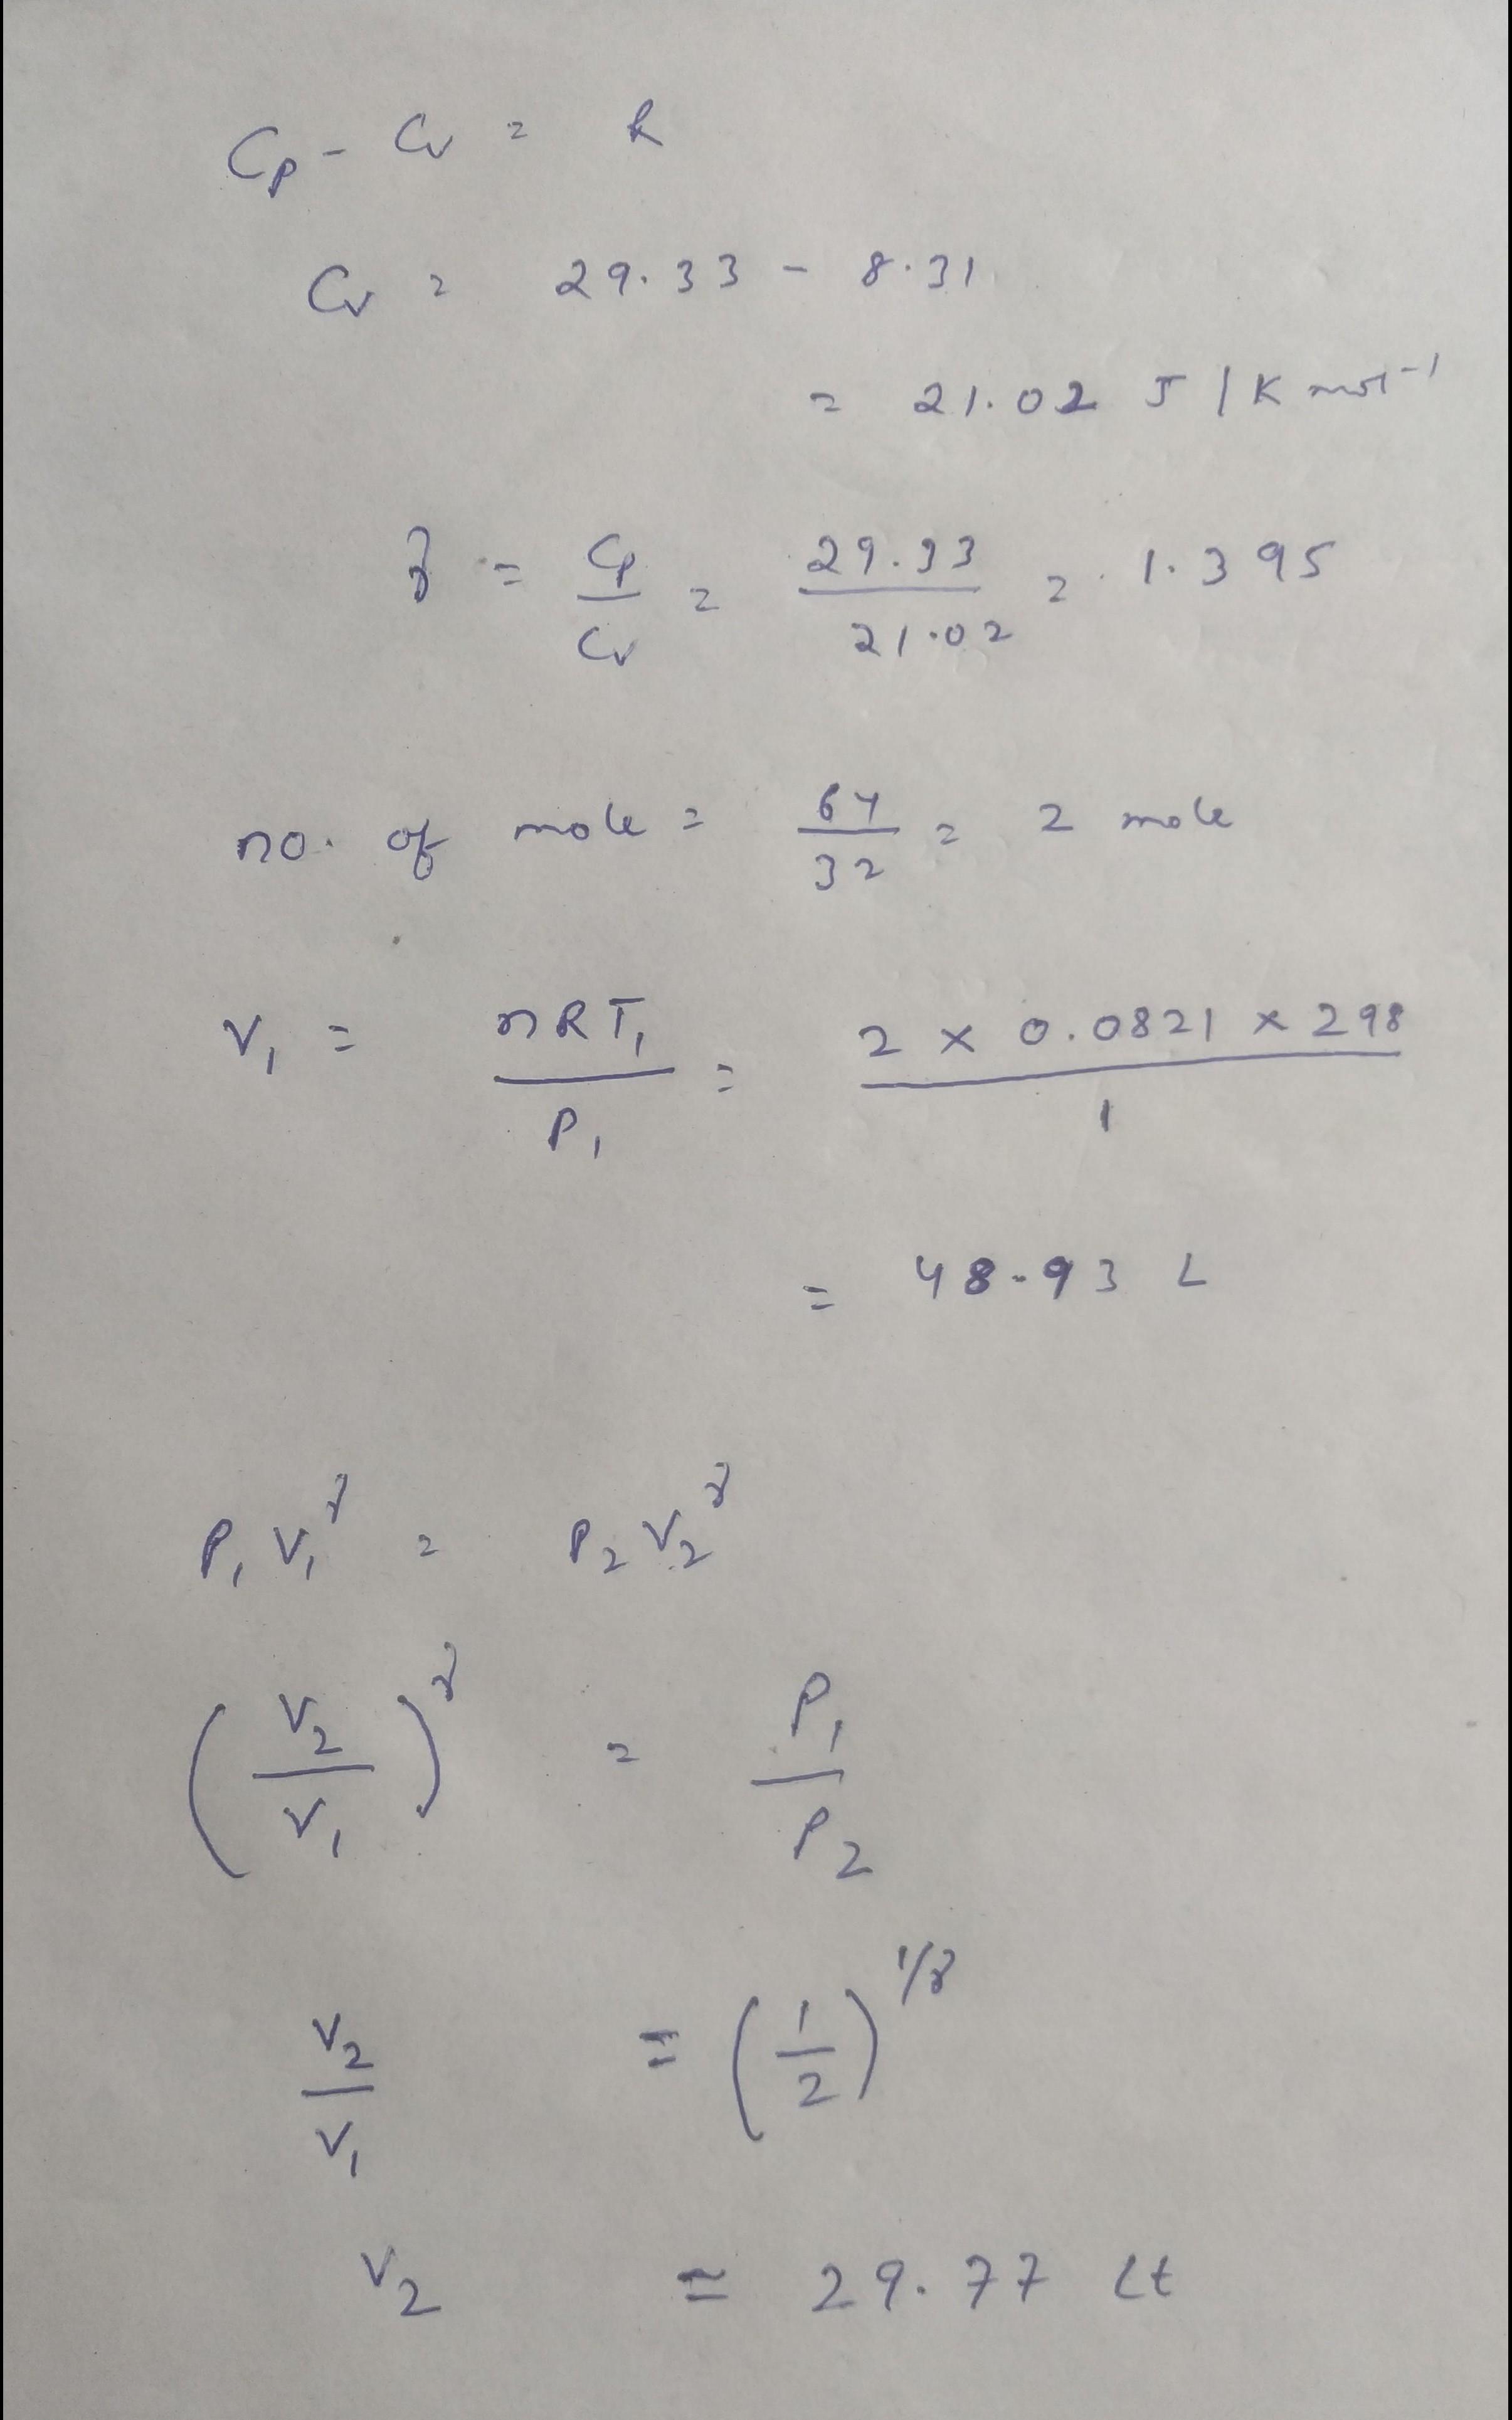 Cp - Cv = R
Cv = 29.33 - 8.31
= 21.02 J / K mol⁻¹
γ = Cp/Cv = 29.33/21.02 = 1.395
no. of mole = 64/32 = 2 mole
V₁ = nRT₁/P₁ = 2 x 0.0821 x 298/1
= 48.93 L
P₁V₁^γ = P₂V₂^γ
(V₂/V₁)^γ = P₁/P₂
V₂/V₁ = (1/2)^1/γ
V₂ = 29.77 Lt